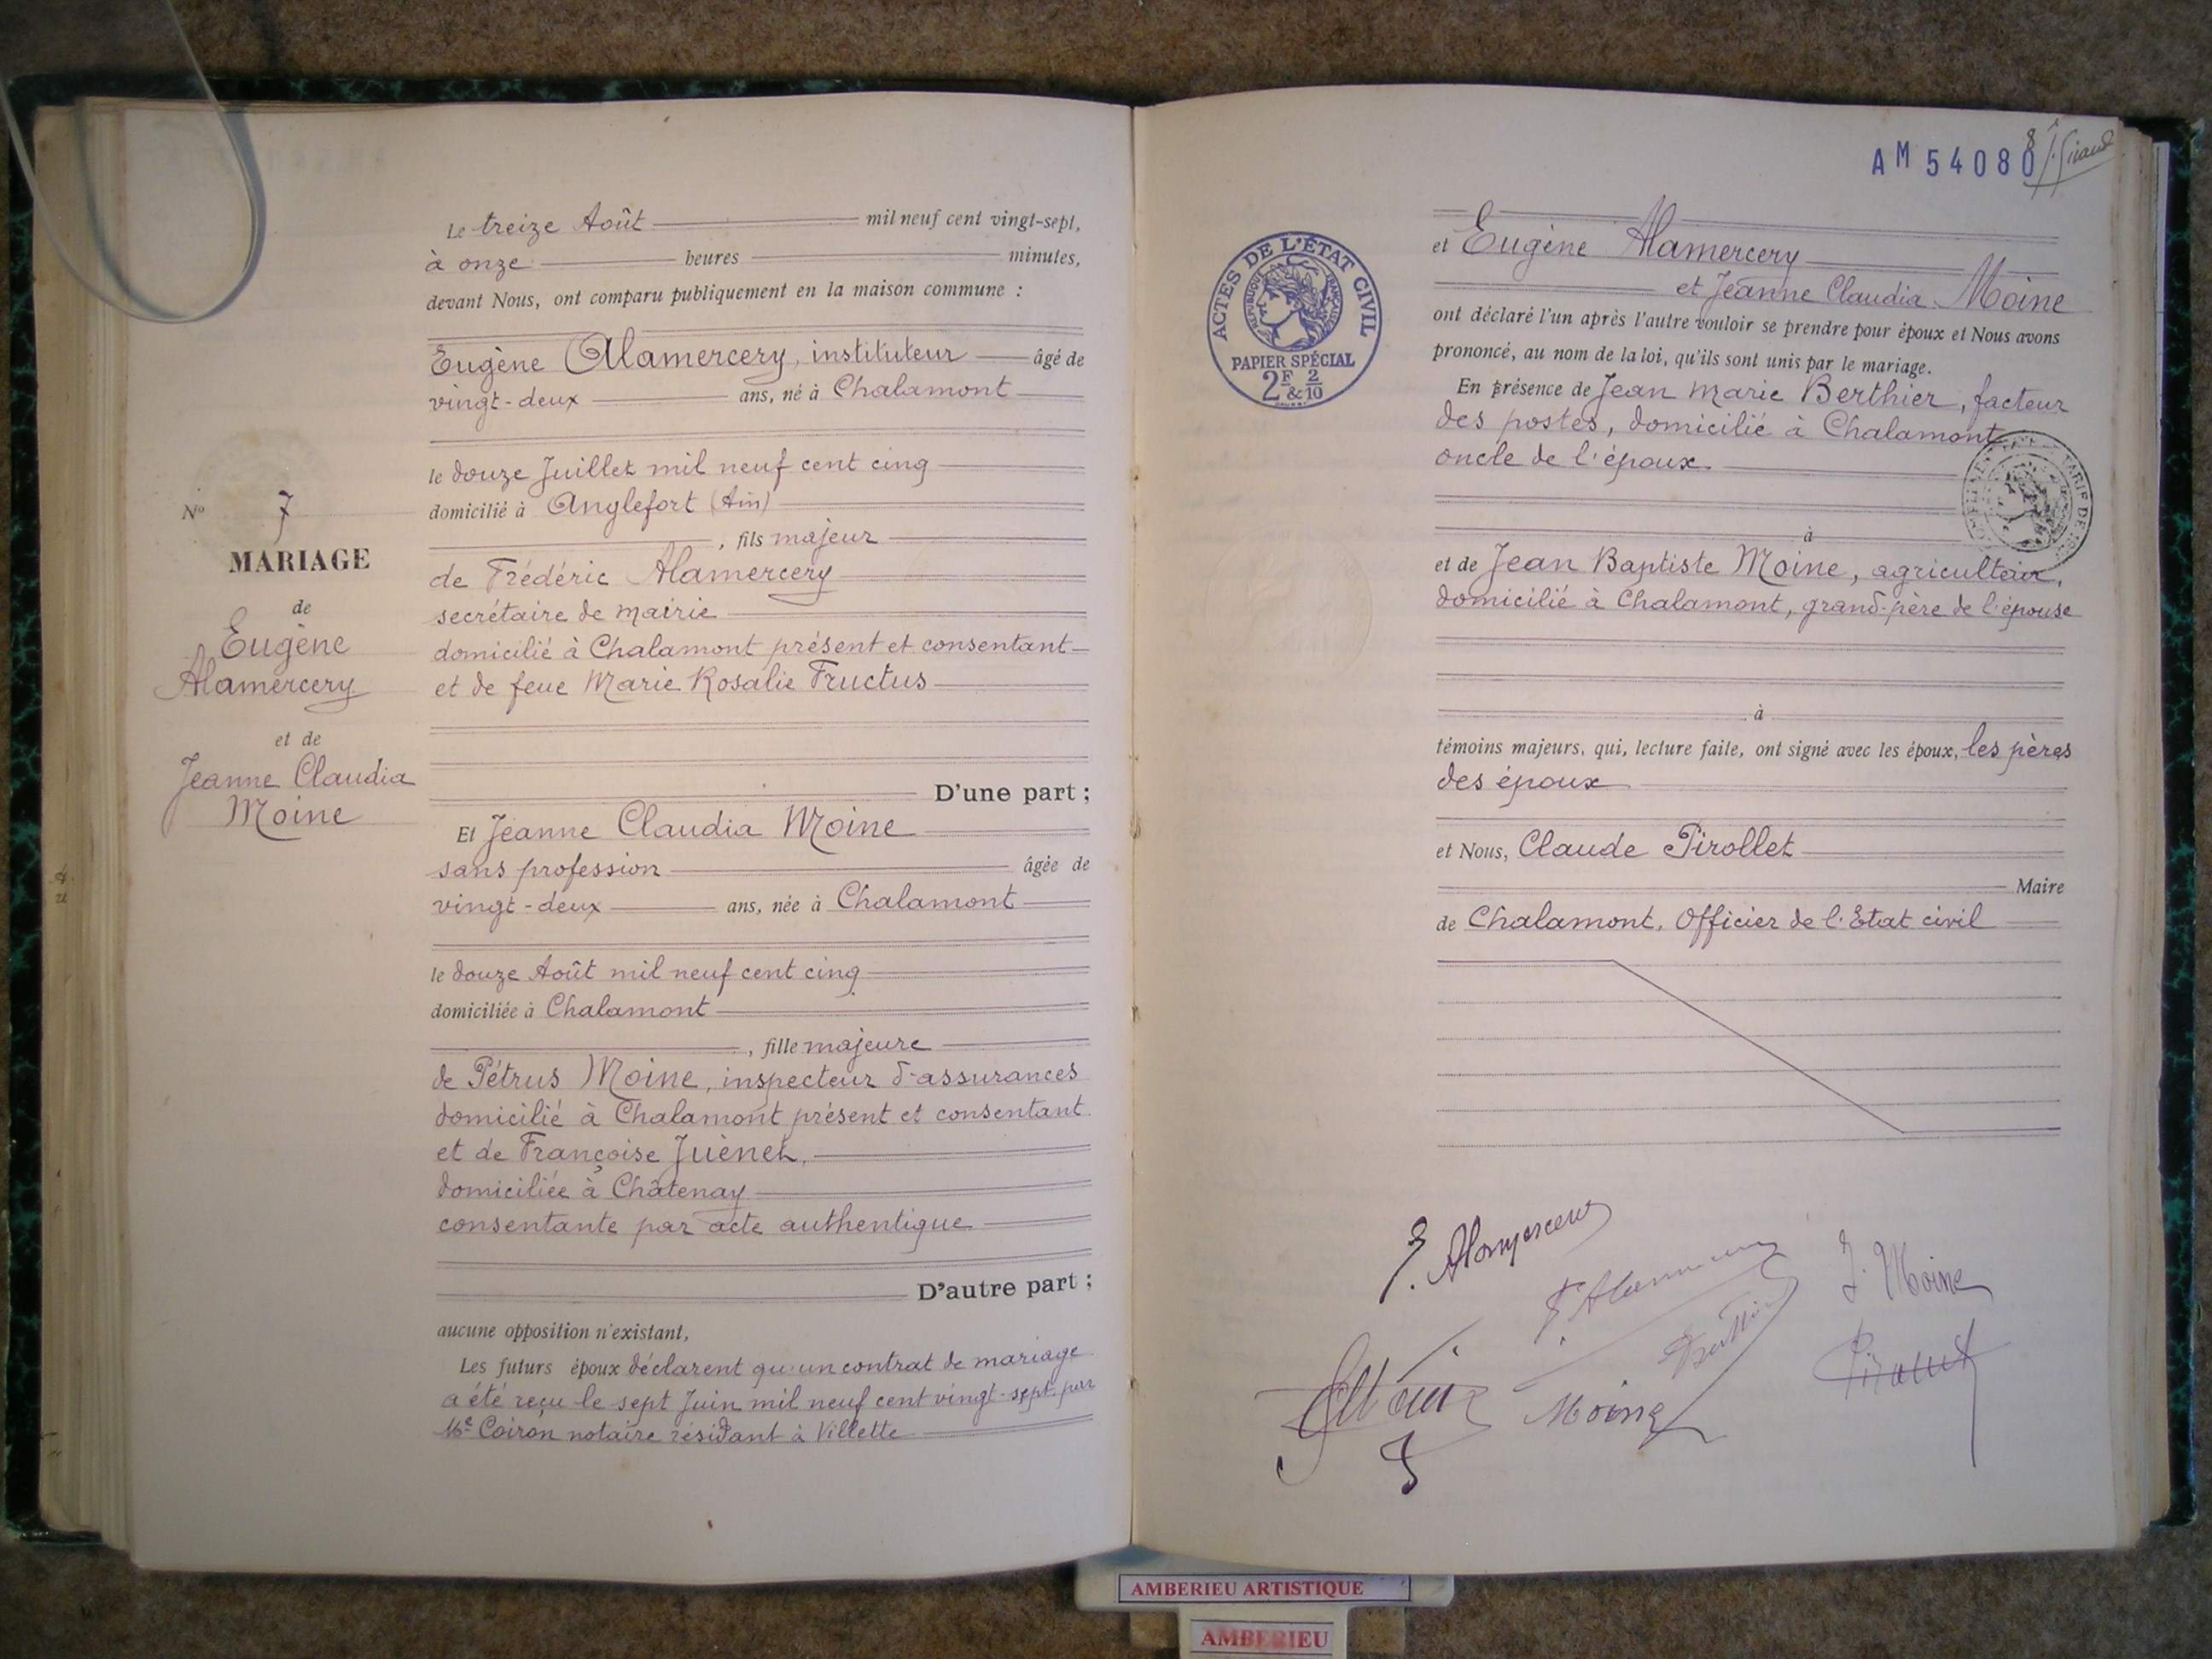 Le treize Août mil neuf cent vingt-sept,
à onze heures minutes,
devant Nous, ont comparu publiquement en la maison commune :
Eugène Alamercery, instituteur âgé de
vingt-deux ans, né à Chalamont
le douze Juillet mil neuf cent cinq
domicilié à Anglefort (Ain)
, fils majeur
de Frédéric Alamercery
secrétaire de mairie
domicilié à Chalamont présent et consentant
et de feue Marie Rosalie Fructus
D'une part ;
Et Jeanne Claudia Moine
sans profession âgée de
vingt-deux ans, née à Chalamont
le douze Août mil neuf cent cinq
domiciliée à Chalamont
, fille majeure
de Pétrus Moine, inspecteur d'assurances
domicilié à Chalamont présent et consentant
et de Françoise Juènet,
domiciliée à Châtenay
consentante par acte authentique
D'autre part ;
aucune opposition n'existant,
Les futurs époux déclarent qu'un contrat de mariage
a été reçu le sept Juin mil neuf cent vingt-sept par
Me Coiron notaire résidant à Villette
No 7
MARIAGE
de
Eugène
Alamercery
et de
Jeanne Claudia
Moine
AM 54080
8
J. Giraud
ACTES DE L'ÉTAT CIVIL
RÉPUBLIQUE FRANÇAISE
PAPIER SPÉCIAL
2F & 2/10
et Eugène Alamercery
et Jeanne Claudia Moine
ont déclaré l'un après l'autre vouloir se prendre pour époux et Nous avons
prononcé, au nom de la loi, qu'ils sont unis par le mariage.
En présence de Jean Marie Berthier, facteur
des postes, domicilié à Chalamont
oncle de l'époux.
à
et de Jean Baptiste Moine, agriculteur,
domicilié à Chalamont, grand-père de l'épouse
à
témoins majeurs, qui, lecture faite, ont signé avec les époux, les pères
des époux
et Nous, Claude Pirollet
Maire
de Chalamont, Officier de l'Etat civil
J. Moine
Moine
AMBERIEU ARTISTIQUE
AMBERIEU